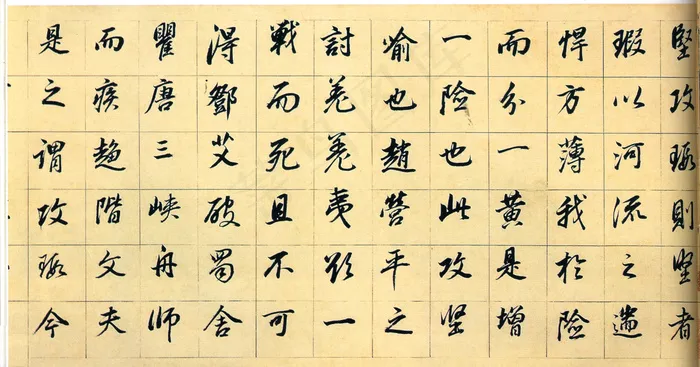 堅攻瑕則堅者
瑕以河流之遄
悍方薄我於險
而分一黃是增
一險也此攻堅
喻也趙營平之
討羌羌夷欲一
戰而死且不可
得鄧艾破蜀舍
瞿唐三峽舟師
而疾趨階文夫
是之謂攻瑕今